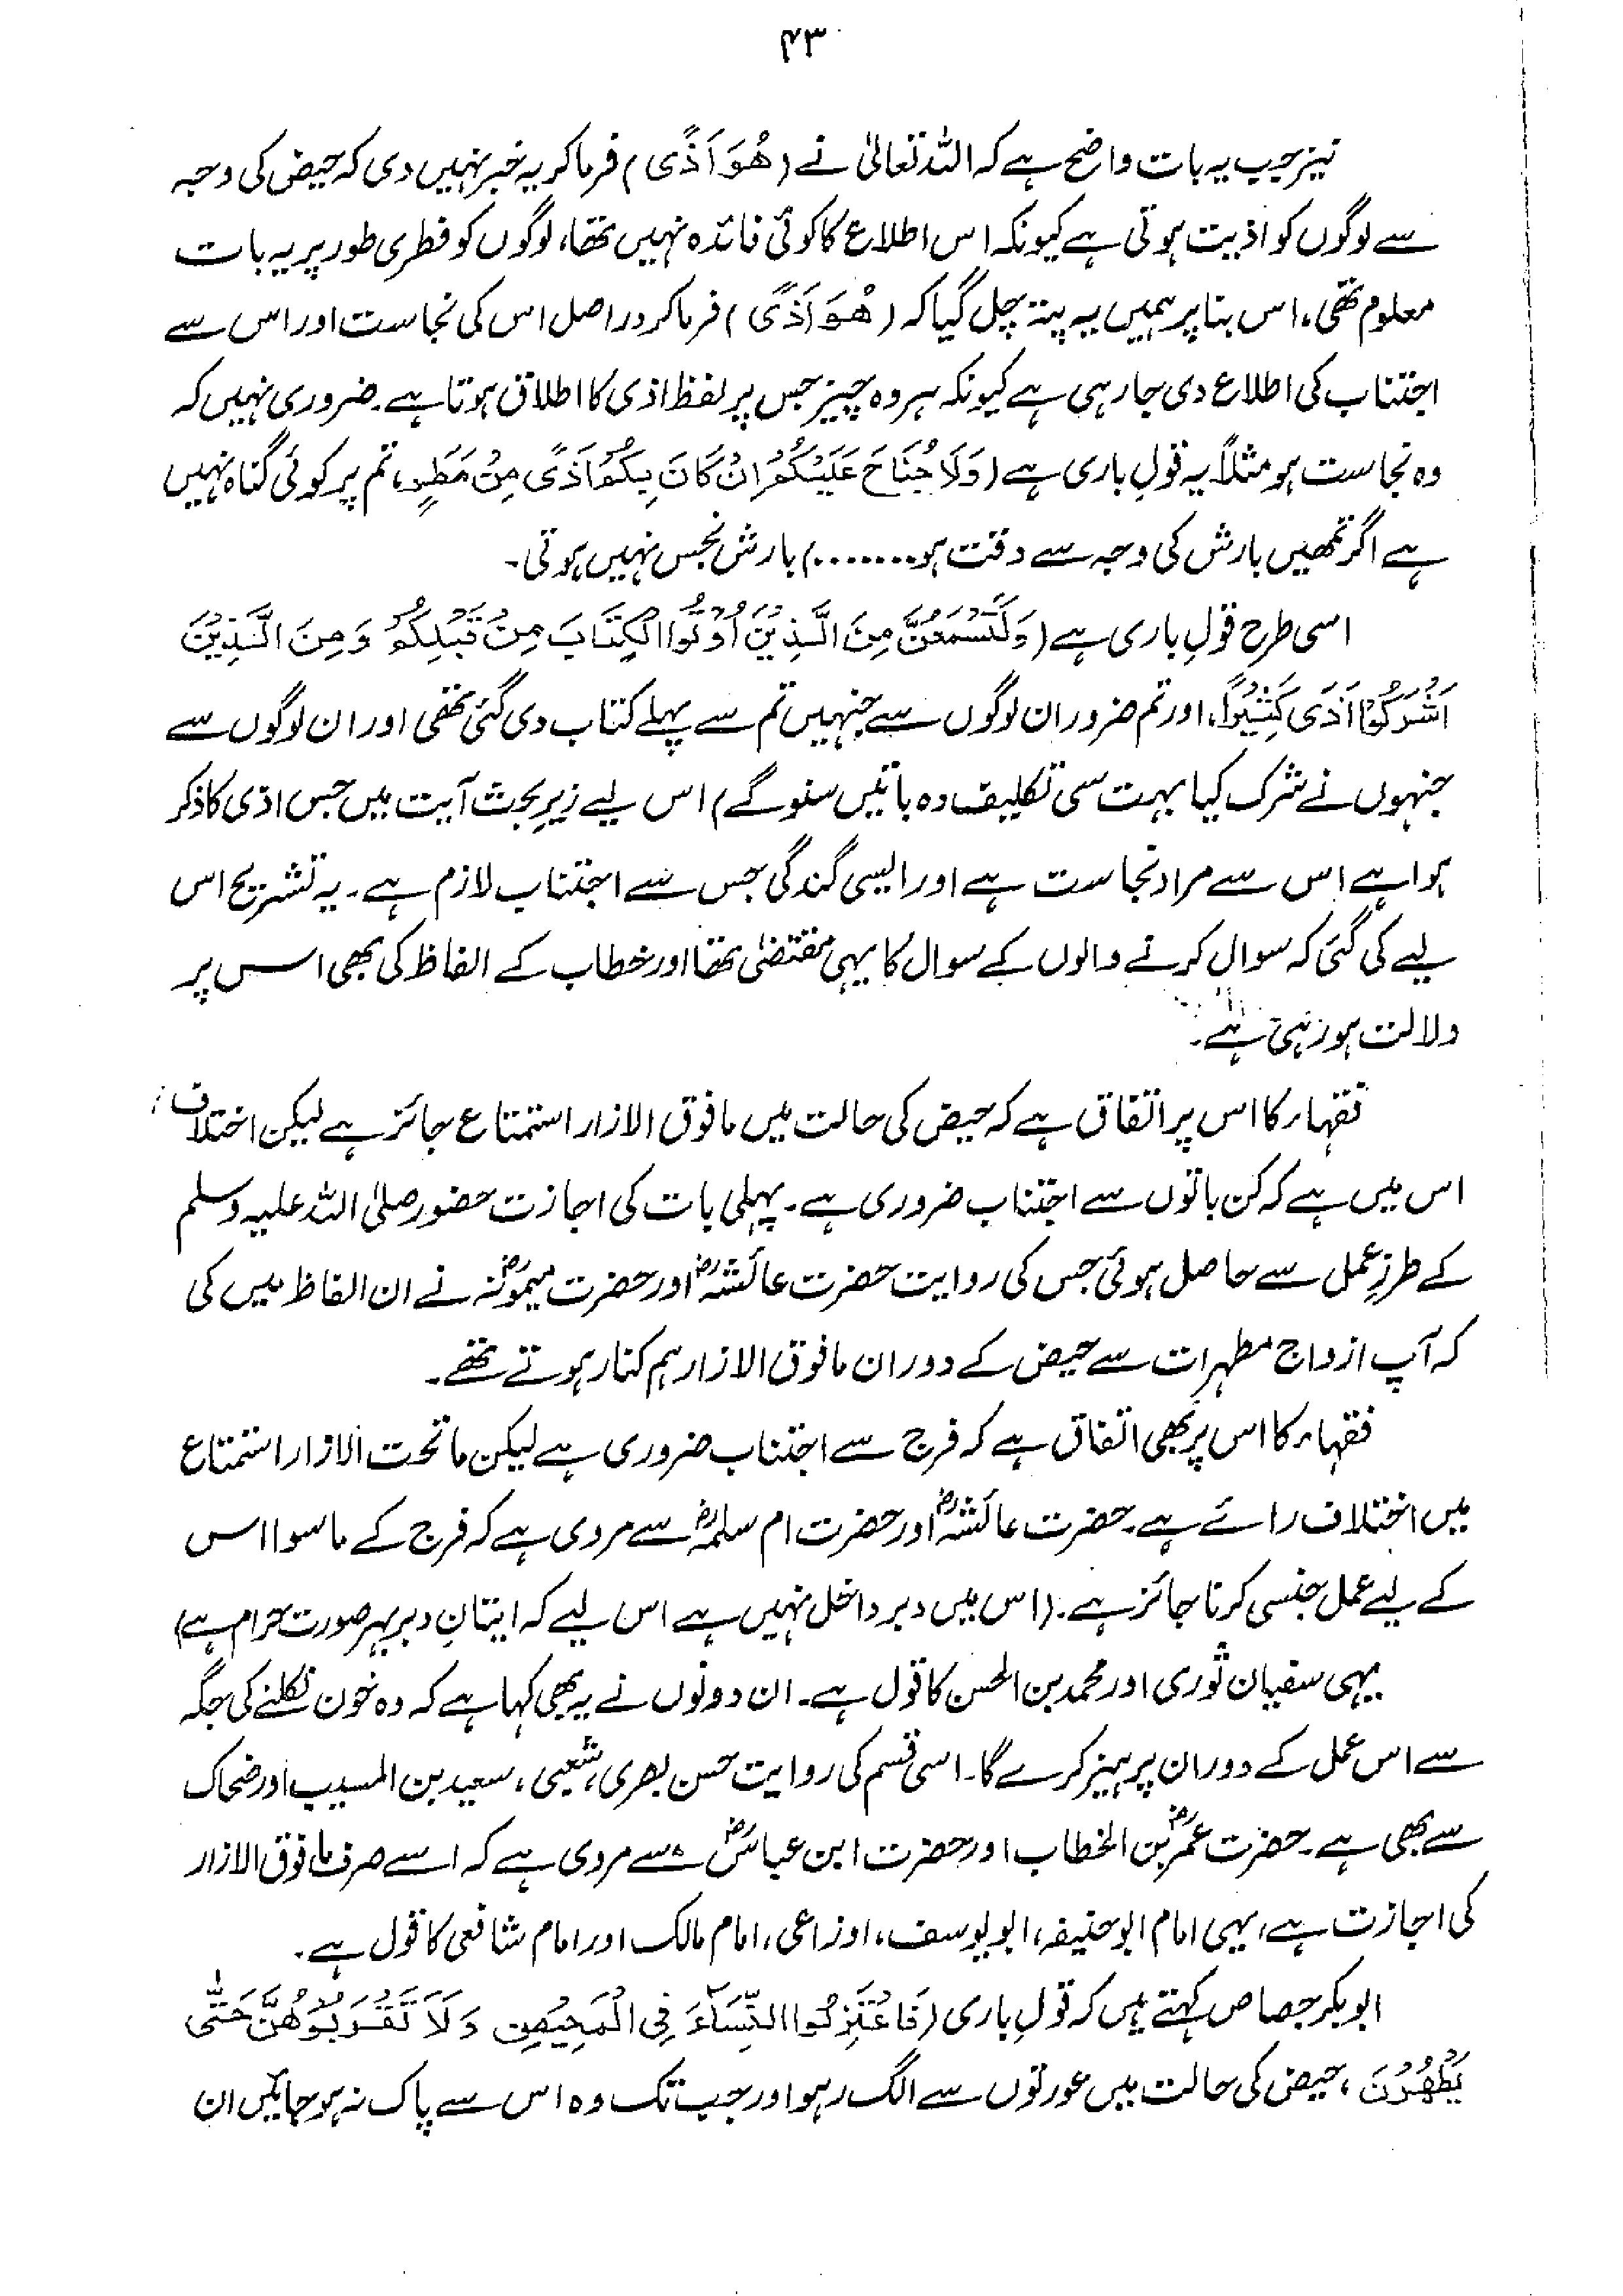 ۴۳
نیز جب یہ بات واضح ہے کہ اللہ تعالیٰ نے (هُوَ اَذًى) فرما کر یہ خبر نہیں دی کہ حیض کی وجہ
سے لوگوں کو اذیت ہوتی ہے کیونکہ اس اطلاع کا کوئی فائدہ نہیں تھا، لوگوں کو فطری طور پر یہ بات
معلوم تھی، اس بنا پر ہمیں یہ پتہ چل گیا کہ (هُوَ اَذًى) فرما کر دراصل اس کی نجاست اور اس سے
اجتناب کی اطلاع دی جا رہی ہے کیونکہ ہر وہ چیز جس پر لفظ اذی کا اطلاق ہوتا ہے۔ ضروری نہیں کہ
وہ نجاست ہو مثلاً یہ قولِ باری ہے (وَلَا جُنَاحَ عَلَيْكُمْ اِنْ كَانَ بِكُمْ اَذًى مِنْ مَطَرٍ، تم پر کوئی گناہ نہیں
ہے اگر تمھیں بارش کی وجہ سے دقت ہو.......) بارش نجس نہیں ہوتی۔
اسی طرح قولِ باری ہے (وَلَتَسْمَعُنَّ مِنَ الَّذِيْنَ اُوْتُوا الْكِتَابَ مِنْ قَبْلِكُمْ وَمِنَ الَّذِيْنَ
اَشْرَكُوْا اَذًى كَثِيْرًا، اور تم ضرور ان لوگوں سے جنہیں تم سے پہلے کتاب دی گئی تھی اور ان لوگوں سے
جنہوں نے شرک کیا بہت سی تکلیف دہ باتیں سنو گے) اس لیے زیرِ بحث آیت میں جس اذی کا ذکر
ہوا ہے اس سے مراد نجاست ہے اور ایسی گندگی جس سے اجتناب لازم ہے۔ یہ تشریح اس
لیے کی گئی کہ سوال کرنے والوں کے سوال کا یہی مقتضیٰ تھا اور خطاب کے الفاظ کی بھی اس پر
دلالت ہو رہی ہے۔
فقہاء کا اس پر اتفاق ہے کہ حیض کی حالت میں مافوق الازار استمتاع جائز ہے لیکن اختلاف
اس میں ہے کہ کن باتوں سے اجتناب ضروری ہے۔ پہلی بات کی اجازت حضور صلی اللہ علیہ وسلم
کے طرزِ عمل سے حاصل ہوئی جس کی روایت حضرت عائشہؓ اور حضرت میمونہؓ نے ان الفاظ میں کی
کہ آپ ازواج مطہرات سے حیض کے دوران مافوق الازار ہم کنار ہوتے تھے۔
فقہاء کا اس پر بھی اتفاق ہے کہ فرج سے اجتناب ضروری ہے لیکن ماتحت الازار استمتاع
میں اختلاف رائے ہے۔ حضرت عائشہؓ اور حضرت ام سلمہؓ سے مروی ہے کہ فرج کے ماسوا اس
کے لیے عمل جنسی کرنا جائز ہے۔ (اس میں دبر داخل نہیں ہے اس لیے کہ ایتانِ دبر بہر صورت حرام ہے)
یہی سفیان ثوری اور محمد بن الحسن کا قول ہے۔ ان دونوں نے یہ بھی کہا ہے کہ وہ خون نکلنے کی جگہ
سے اس عمل کے دوران پرہیز کرے گا۔ اسی قسم کی روایت حسن بصری، شعبی، سعید بن المسیب اور ضحاک
سے بھی ہے۔ حضرت عمرؓ بن الخطاب اور حضرت ابن عباسؓ سے مروی ہے کہ اسے صرف مافوق الازار
کی اجازت ہے، یہی امام ابو حنیفہ، ابو یوسف، اوزاعی، امام مالک اور امام شافعی کا قول ہے۔
ابوبکر جصاص کہتے ہیں کہ قولِ باری (فَاعْتَزِلُوا النِّسَآءَ فِي الْمَحِيْضِ وَلَا تَقْرَبُوْهُنَّ حَتّٰى
يَطْهُرْنَ، حیض کی حالت میں عورتوں سے الگ رہو اور جب تک وہ اس سے پاک نہ ہو جائیں ان